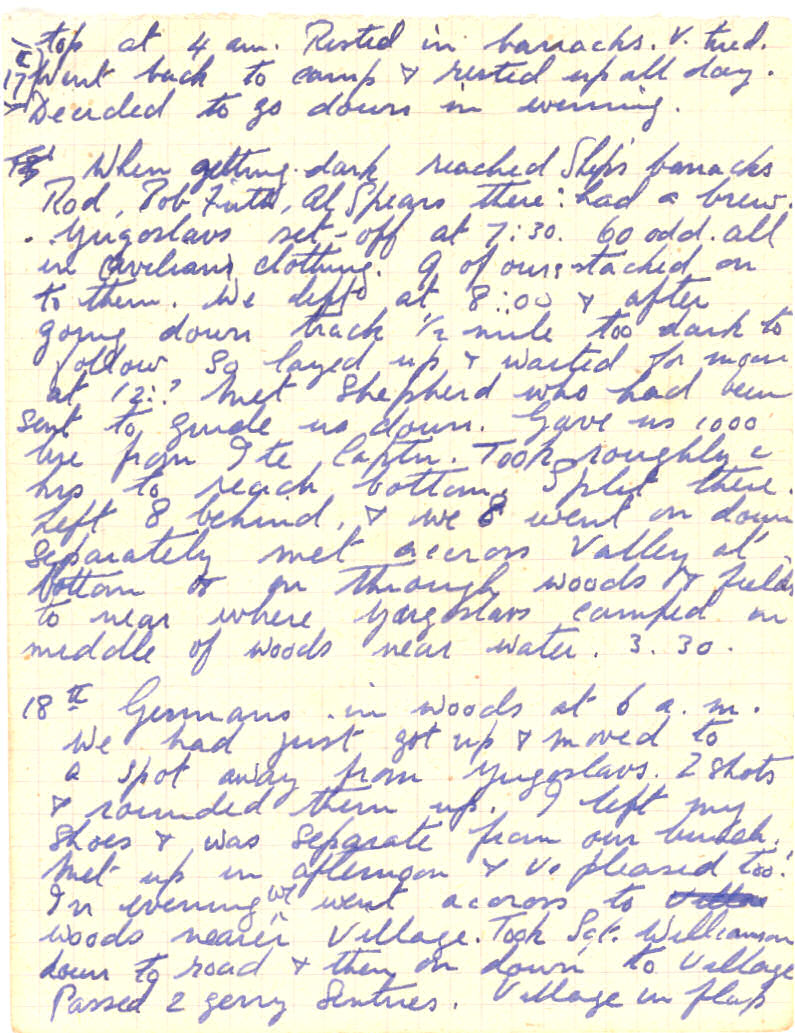 top at 4 am. Rested in barracks. V. tired.
17 Went back to camp & rested up all day.
Decided to go down in evening.
When getting dark reached Slip's barracks
Rod, Bob Firth, Al Spears there: had a brew.
Yugoslavs set-off at 7:30. 60 odd. all
in civilian clothing. 9 of ours stached on
to them. We left at 8:00 & after
going down track 1/2 mile too dark to
follow So layed up & waited for moon
at 12:? Met Shepherd who had been
sent to guide us down. Gave us 1000
lire from Ite Captn. Took roughly 2
hrs to reach bottom, Split there.
Left 8 behind, & we 8 went on down
separately met accross Valley at
bottom & on through woods & fields
to near where Yugoslavs camped in
middle of woods near water. 3.30.
18th Germans in woods at 6 a.m.
We had just got up & moved to
a spot away from Yugoslavs. 2 shots
& rounded them up. I left my
shoes & was separate from our bunch.
Met up in afternoon & v. pleased too!
In evening we went accross to
woods nearer Village. Took Sgt. Williamson
down to road & then on down to Village
Passed 2 gerry Sentries. Village in flap